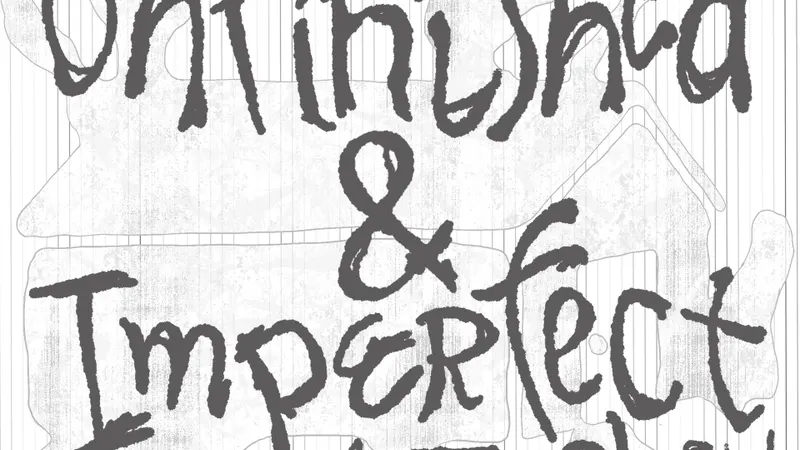 Unfinished
&
Imperfect